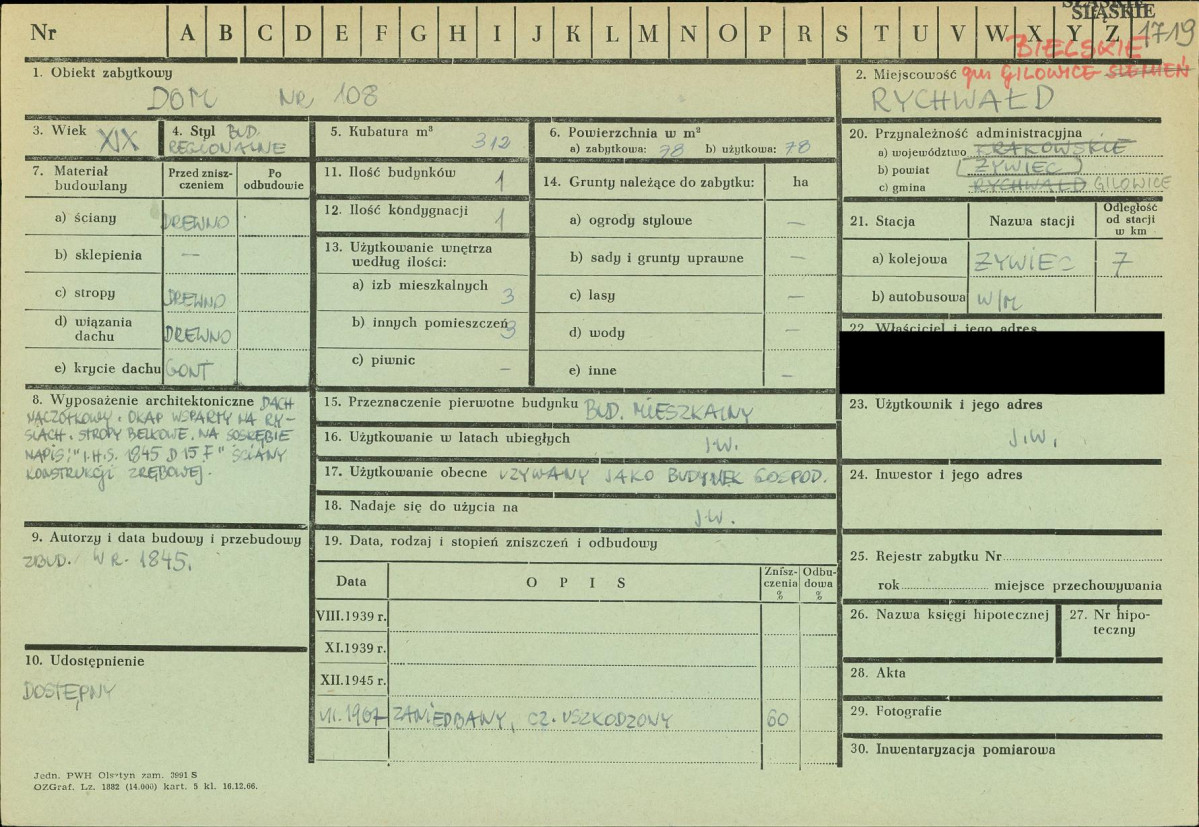 Nr A B C D E F G H I J K L M N O P R S T U V W X Y Z
ŚLĄSKIE
1719
BIELSKIE
gm GILOWICE ŚLEMIEŃ
1. Obiekt zabytkowy
DOM NR 108
2. Miejscowość
RYCHWAŁD
3. Wiek XIX
4. Styl BUD.
REGIONALNE
5. Kubatura m³ 312
6. Powierzchnia w m²
a) zabytkowa: 78 b) użytkowa: 78
7. Materiał budowlany
Przed znisz-
czeniem
Po
odbudowie
a) ściany DREWNO
b) sklepienia —
c) stropy DREWNO
d) wiązania
dachu DREWNO
e) krycie dachu GONT
8. Wyposażenie architektoniczne DACH
NACZÓŁKOWY. OKAP WSPARTY NA RY-
SIACH. STROPY BELKOWE. NA SOSRĘBIE
NAPIS: "I.H.S. 1845 D 15 F" ŚCIANY
KONSTRUKCJI ZRĘBOWEJ.
9. Autorzy i data budowy i przebudowy
ZBUD. W R. 1845.
10. Udostępnienie
DOSTĘPNY
11. Ilość budynków 1
12. Ilość kondygnacji 1
13. Użytkowanie wnętrza
według ilości:
a) izb mieszkalnych 3
b) innych pomieszczeń 3
c) piwnic —
14. Grunty należące do zabytku: ha
a) ogrody stylowe —
b) sady i grunty uprawne —
c) lasy —
d) wody —
e) inne —
15. Przeznaczenie pierwotne budynku BUD. MIESZKALNY
16. Użytkowanie w latach ubiegłych J.W.
17. Użytkowanie obecne UŻYWANY JAKO BUDYNEK GOSPOD.
18. Nadaje się do użycia na J.W.
19. Data, rodzaj i stopień zniszczeń i odbudowy
Data OPIS Znisz-
czenia
% Odbu-
dowa
%
VIII.1939 r.
XI.1939 r.
XII.1945 r.
VII.1967 ZANIEDBANY, CZ. USZKODZONY 60
20. Przynależność administracyjna
a) województwo KRAKOWSKIE
b) powiat ŻYWIEC
c) gmina RYCHWAŁD GILOWICE
21. Stacja Nazwa stacji Odległość
od stacji
w km
a) kolejowa ŻYWIEC 7
b) autobusowa W/M
22. Właściciel i jego adres
23. Użytkownik i jego adres
J.W.
24. Inwestor i jego adres
25. Rejestr zabytku Nr
rok miejsce przechowywania
26. Nazwa księgi hipotecznej
27. Nr hipo-
teczny
28. Akta
29. Fotografie
30. Inwentaryzacja pomiarowa
Jedn. PWH Olsztyn zam. 3991 S
OZGraf. Lz. 1882 (14.000) kart. 5 kl. 16.12.66.